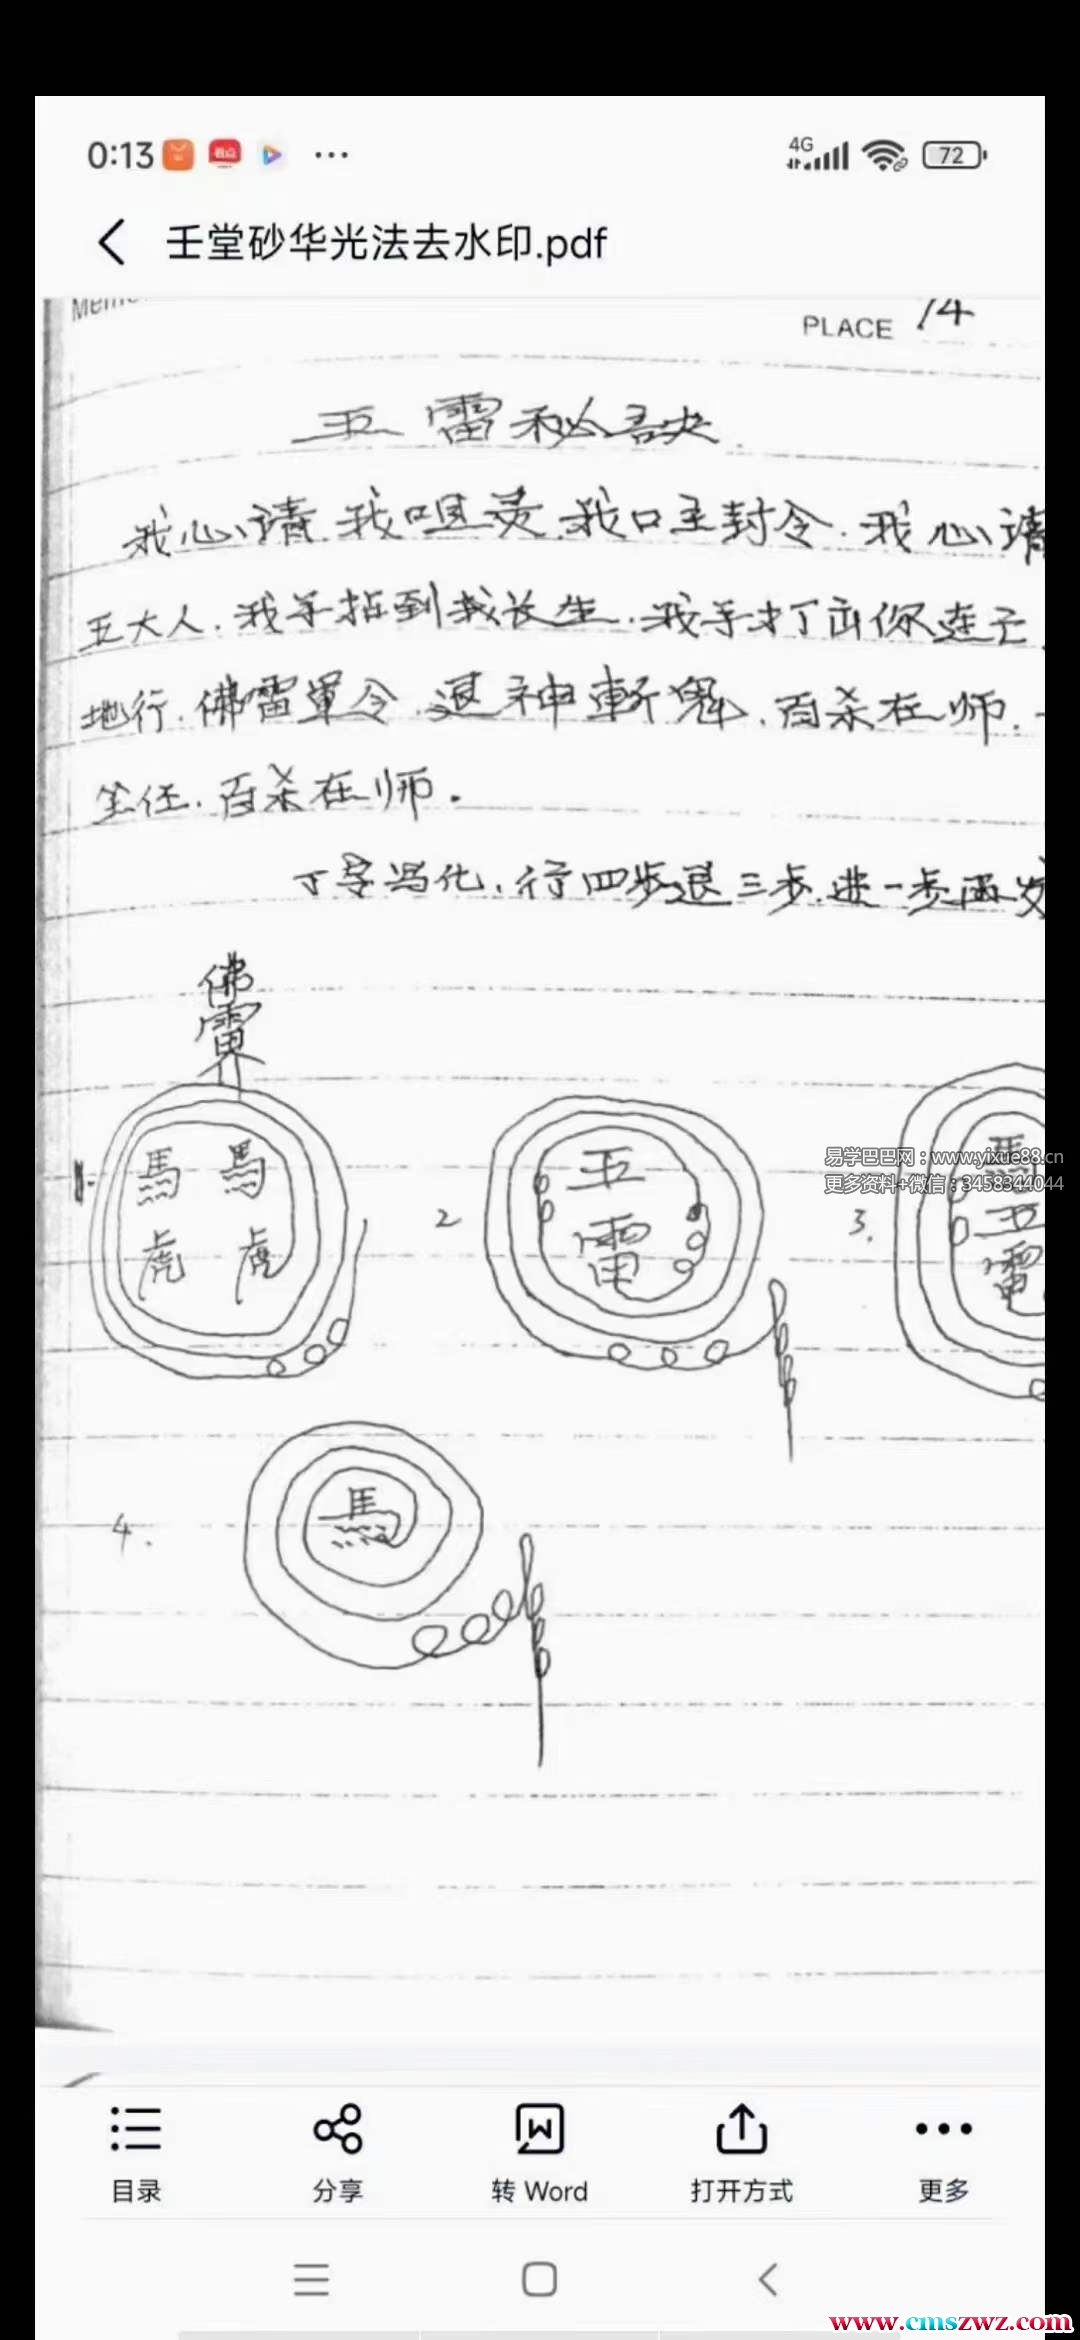 0:13
4G
72
壬堂砂华光法去水印.pdf
PLACE 14
五雷秘訣
我心请.我咀灵.我口至封令.我心请
五大人.我手拈到我长生.我手打
地行.佛雷軍令.退神斬鬼.百杀在师.
坐任.百杀在师.
丁字冯化,行四步退三步.进一步
佛
雷
1.
馬 馬
虎 虎
2
五
雷
3.
馬
五
雷
易学巴巴网：www.yixue88.cn
更多资料+微信：3458344044
4.
馬
目录
分享
转 Word
打开方式
更多
www.cmszwz.com